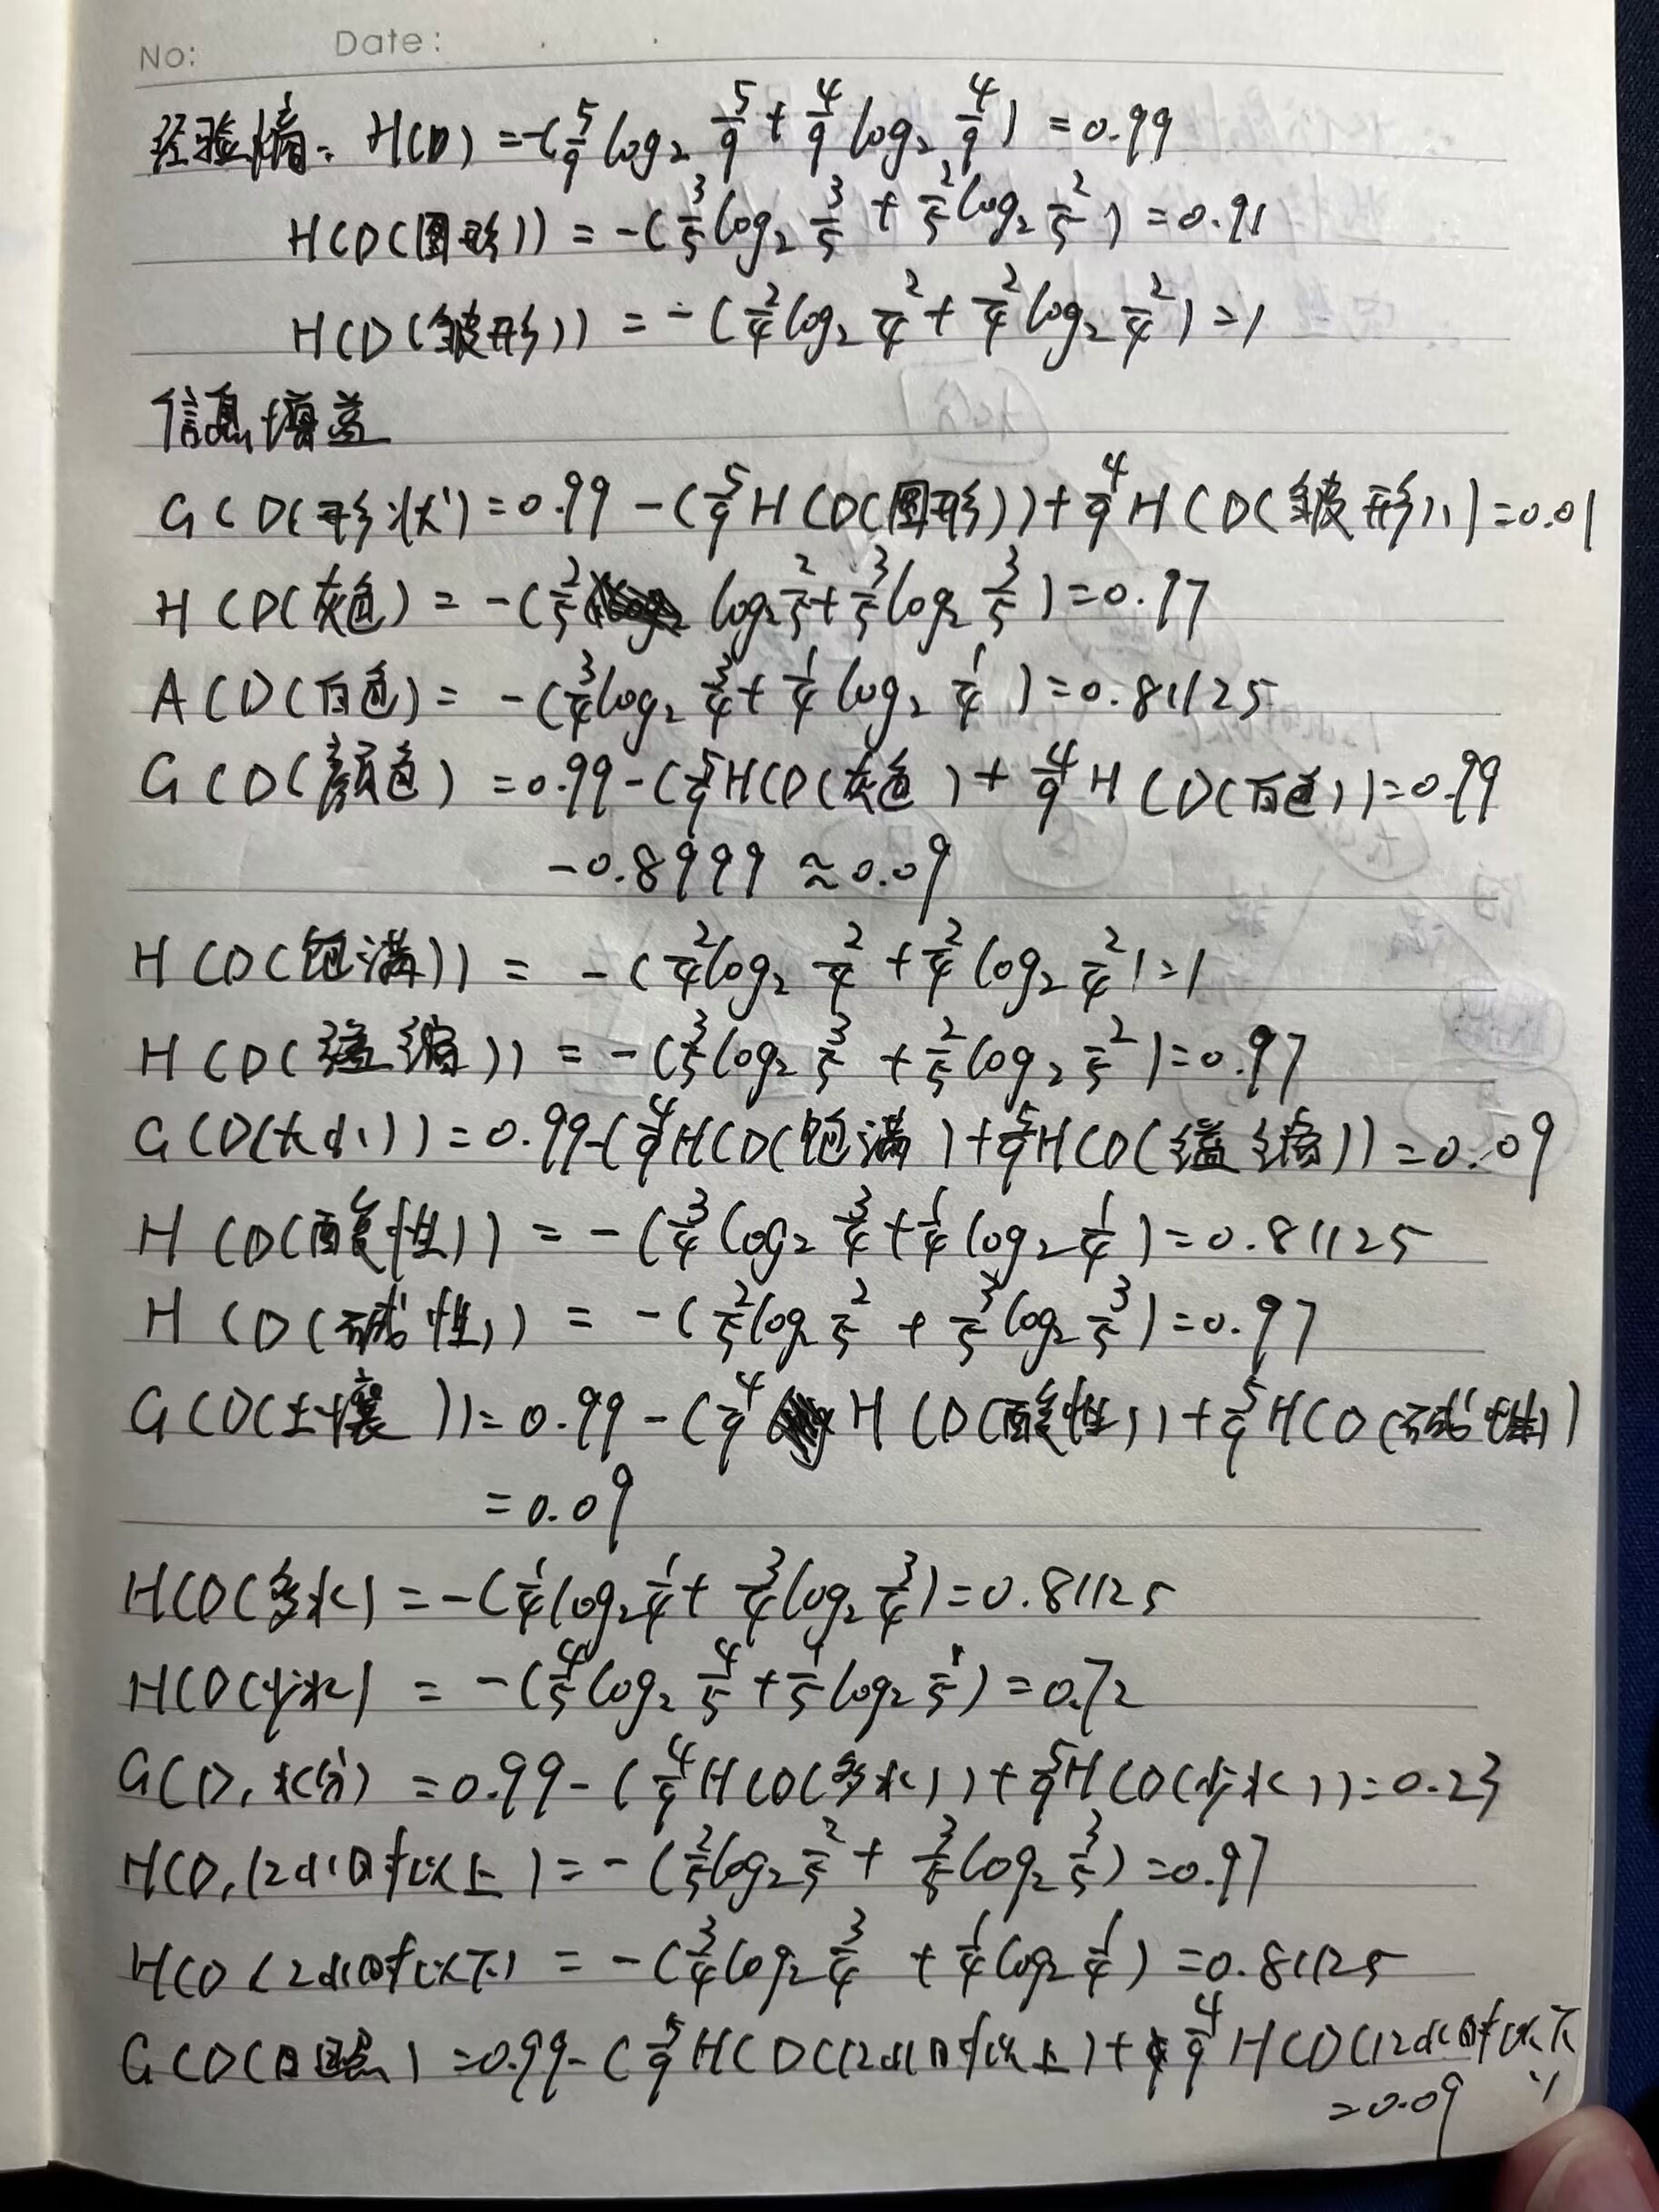 No: Date:
经验熵: H(D) = -(5/9 log₂ 5/9 + 4/9 log₂ 4/9) = 0.99
H(D(圆形)) = -(3/5 log₂ 3/5 + 2/5 log₂ 2/5) = 0.91
H(D(皱形)) = -(2/4 log₂ 2/4 + 2/4 log₂ 2/4) = 1
信息增益
G(D(形状) = 0.99 - (5/9 H(D(圆形)) + 4/9 H(D(皱形))) = 0.01
H(D(灰色) = -(2/5 log₂ 2/5 + 3/5 log₂ 3/5) = 0.97
A(D(白色) = -(3/4 log₂ 3/4 + 1/4 log₂ 1/4) = 0.81125
G(D(颜色) = 0.99 - (5/9 H(D(灰色) + 4/9 H(D(白色)) = 0.99
-0.8999 ≈ 0.09
H(D(饱满)) = -(2/4 log₂ 2/4 + 2/4 log₂ 2/4) = 1
H(D( 缩)) = -(3/5 log₂ 3/5 + 2/5 log₂ 2/5) = 0.97
G(D(大小)) = 0.99 - (4/9 H(D(饱满) + 5/9 H(D( 缩)) = 0.09
H(D(酸性)) = -(3/4 log₂ 3/4 + 1/4 log₂ 1/4) = 0.81125
H(D(碱性)) = -(2/5 log₂ 2/5 + 3/5 log₂ 3/5) = 0.97
G(D(土壤)) = 0.99 - (4/9 H(D(酸性)) + 5/9 H(D(碱性))
= 0.09
H(D(多水) = -(1/4 log₂ 1/4 + 3/4 log₂ 3/4) = 0.81125
H(D(少水) = -(4/5 log₂ 4/5 + 1/5 log₂ 1/5) = 0.72
G(D, 水份) = 0.99 - (4/9 H(D(多水)) + 5/9 H(D(少水)) = 0.23
H(D, (2小时以上) = -(2/5 log₂ 2/5 + 3/5 log₂ 3/5) = 0.97
H(D(2小时以下) = -(3/4 log₂ 3/4 + 1/4 log₂ 1/4) = 0.81125
G(D(日照) = 0.99 - (5/9 H(D(12小时以上) + 4/9 H(D(12小时以下
)) = 0.09